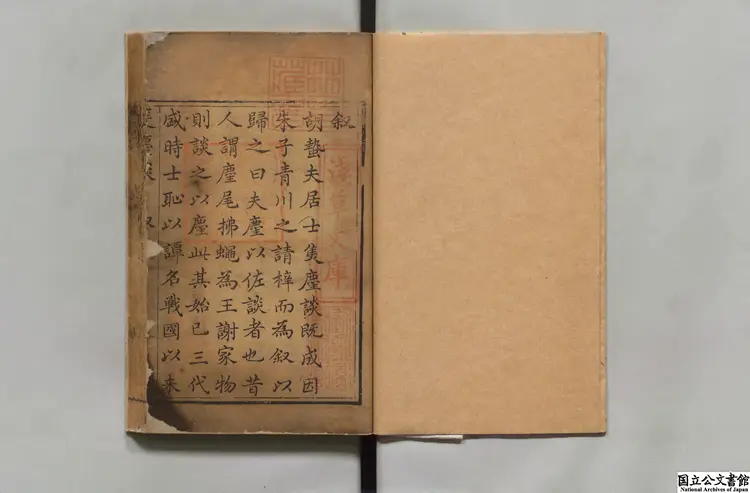 叙
胡蟄夫居士隻麈談既成因
朱子青川之請梓而為叙以
歸之曰夫麈以佐談者也昔
人謂麈尾拂蠅為王謝家物
則談之以麈此其始已三代
盛時士恥以譚名戰國以来
文庫
国立公文書館
National Archives of Japan